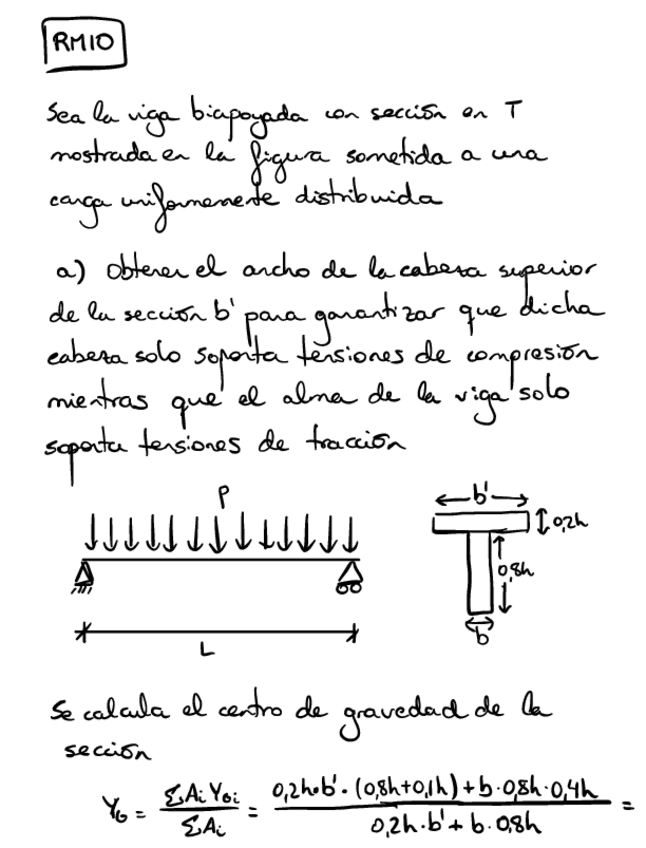 RM10
Sea la viga biapoyada con sección en T
mostrada en la figura sometida a una
carga uniformemente distribuida
a) Obtener el ancho de la cabeza superior
de la sección b' para garantizar que dicha
cabeza solo soporta tensiones de compresión
mientras que el alma de la viga solo
soporta tensiones de tracción
P
b'
0,2h
0,8h
b
L
Se calcula el centro de gravedad de la
sección
Y_G = ΣA_i Y_Gi / ΣA_i = 0,2h·b'·(0,8h+0,1h)+b·0,8h·0,4h / 0,2h·b'+b·0,8h =